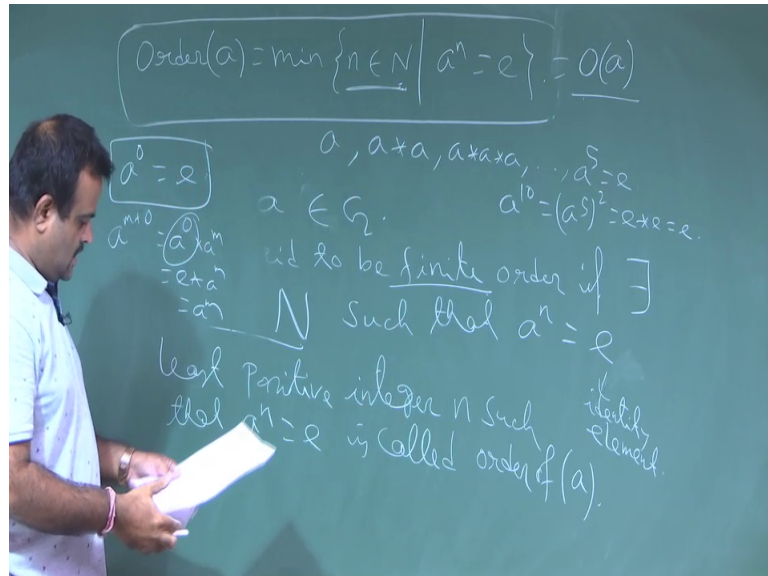 Order(a) = min {n ∈ N | a^n = e}. = O(a)
a, a*a, a*a*a, ..., a^5 = e
a^0 = e
a^10 = (a^5)^2 = e*e = e.
a ∈ G.
a^{m+0} = a^0 * a^m
= e*a^m
= a^m
id to be finite order if ∃
N such that a^n = e
identity
element.
least positive integer n such
that a^n = e is called order of (a).